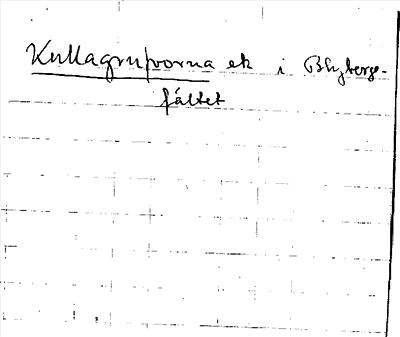 Kullagruvorna ek i Blybergs-
fältet